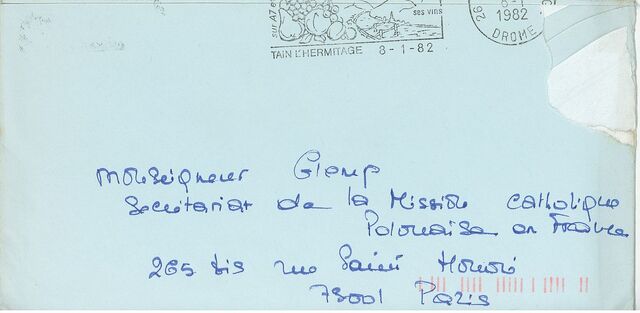 sur A7 et
ses vins
TAIN L'HERMITAGE 8-1-82
26
8-1
1982
DROME
Monseigneur Glemp
Secrétariat de la Mission Catholique
Polonaise en France
265 bis rue Saint Honoré
75001 Paris